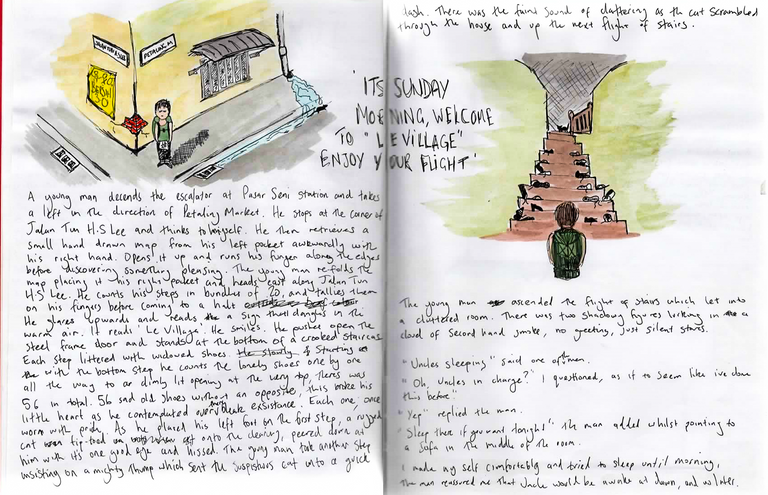 PETALING M
'ITS SUNDAY
MORNING, WELCOME
TO "LE VILLAGE"
ENJOY YOUR FLIGHT'
A young man decends the escalator at Pasar Seni station and takes
a left in the direction of Petaling Market. He stops at the corner of
Jalan Tun H.S Lee and thinks to himself. He then retrieves a
small hand drawn map from his left pocket awkwardly with
his right hand. Opens it up and runs his finger along the edges
before discovering something pleasing. The young man re folds the
map placing it his right pocket and heads east along Jalan Tun
H.S Lee. He counts his steps in bundles of 20, and tallies them
on his fingers before coming to a halt
He glares upwards and reads a sign that dangles in the
warm air. It reads 'Le Village'. He smiles. He pushes open the
steel frame door and stands at the bottom of a crooked staircase
Each step littered with widowed shoes. He slowly. Starting
with the bottom step he counts the lonely shoes one by one
all the way to a dimly lit opening at the very top, theres was
56 in total. 56 sad old shoes without an opposite, this broke his
little heart as he contemplated over their bleak exsistance. Each one, once
worn with pride. As he placed his left foot on the first step, a rugged
cat tip-toed onto the clearing, peered down at
him with its one good eye and hissed. The young man took another step
insisting on a mighty thump which sent the suspicious cat into a quick
dash. There was the faint sound of clattering as the cat scrambled
through the house and up the next flight of stairs.
The young man ascended the flight of stairs which let into
a cluttered room. There was two shadowy figures lurking in a
cloud of second hand smoke, no greeting, just silent stares.
"Uncles sleeping" said one of men.
"Oh, Uncles in charge?" I questioned, as if to seem like ive done
this before"
"Yep" replied the man.
"Sleep there if you want tonight" the man added whilst pointing to
a sofa in the middle of the room.
I made my self comfortable and tried to sleep until morning,
the man reassured me that Uncle would be awake at dawn, and no later.